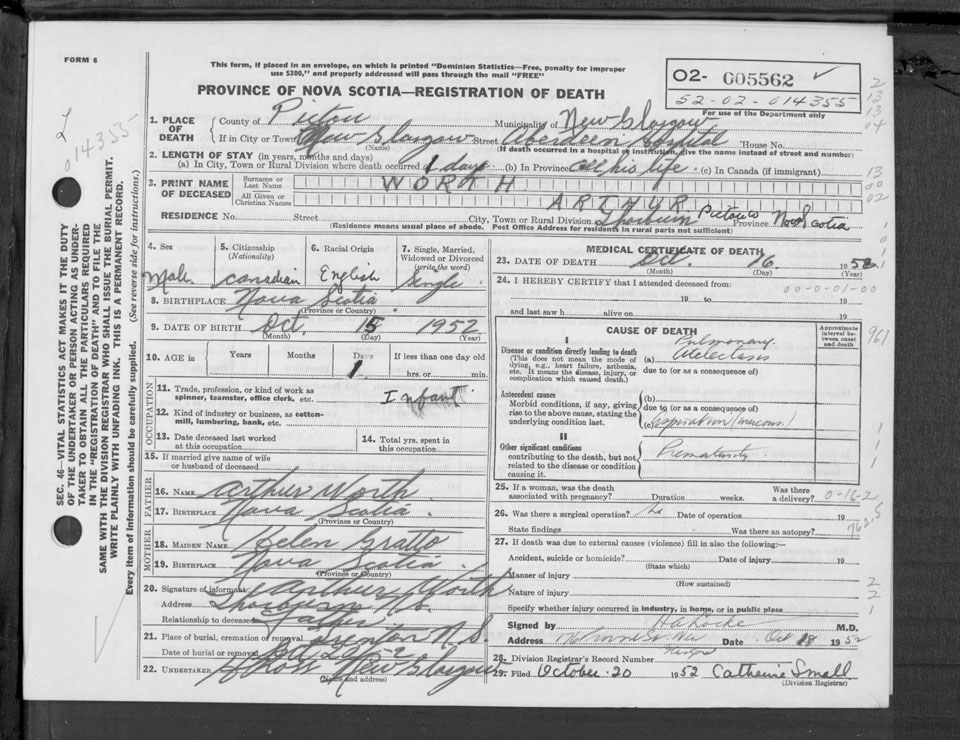 FORM 6
This form, if placed in an envelope, on which is printed "Dominion Statistics—Free, penalty for improper
use $300," and properly addressed will pass through the mail "FREE"
PROVINCE OF NOVA SCOTIA—REGISTRATION OF DEATH
02- 005562 ✓
52-02-014355
For use of the Department only
2
13
13
04
13
00
02
014355
SEC. 46 VITAL STATISTICS ACT MAKES IT THE DUTY
OF THE UNDERTAKER OR PERSON ACTING AS UNDER-
TAKER TO OBTAIN ALL THE PARTICULARS REQUIRED
IN THE "REGISTRATION OF DEATH" AND TO FILE THE
SAME WITH THE DIVISION REGISTRAR WHO SHALL ISSUE THE BURIAL PERMIT.
WRITE PLAINLY WITH UNFADING INK. THIS IS A PERMANENT RECORD.
Every item of information should be carefully supplied. (See reverse side for instructions.)
1. PLACE OF DEATH
County of Pictou Municipality of New Glasgow
If in City or Town New Glasgow Street Aberdeen House No.
(Name) (If death occurred in a hospital or institution, give the name instead of street and number)
2. LENGTH OF STAY (in years, months and days)
(a) In City, Town or Rural Division where death occurred 1 day (b) In Province all his life (c) In Canada (if immigrant)
3. PRINT NAME OF DECEASED
Surname or Last Name WORTH
All Given or Christian Names ARTHUR
RESIDENCE No. Street City, Town or Rural Division Thorburn Pictou Co Province Nova Scotia
(Residence means usual place of abode. Post Office Address for residents in rural parts not sufficient)
4. Sex Male
5. Citizenship (Nationality) Canadian
6. Racial Origin English
7. Single, Married, Widowed or Divorced (write the word) Single
8. BIRTHPLACE Nova Scotia
(Province or Country)
9. DATE OF BIRTH Oct. 15 1952
(Month) (Day) (Year)
10. AGE in Years Months Days 1 If less than one day old
hrs. or min.
OCCUPATION
11. Trade, profession, or kind of work as
spinner, teamster, office clerk, etc. Infant
12. Kind of industry or business, as cotton-
mill, lumbering, bank, etc.
13. Date deceased last worked
at this occupation
14. Total yrs. spent in
this occupation
15. If married give name of wife
or husband of deceased
FATHER
16. NAME Arthur Worth
17. BIRTHPLACE Nova Scotia
(Province or Country)
MOTHER
18. MAIDEN NAME Helen Gratto
19. BIRTHPLACE Nova Scotia
(Province or Country)
20. Signature of informant Arthur Worth
Address Thorburn N.S.
Relationship to deceased Father
21. Place of burial, cremation or removal Trenton N.S.
Date of burial or removal
22. UNDERTAKER New Glasgow
(Name and address)
MEDICAL CERTIFICATE OF DEATH
23. DATE OF DEATH Oct. 16 1952
(Month) (Day) (Year)
24. I HEREBY CERTIFY that I attended deceased from:
00-0-01-00
19 to 19
and last saw h alive on 19
CAUSE OF DEATH
Approximate interval between onset and death
961
I
Disease or condition directly leading to death
(This does not mean the mode of
dying, e.g., heart failure, asthenia,
etc. It means the disease, injury, or
complication which caused death.)
(a) Pulmonary Atelectasis
due to (or as a consequence of)
Antecedent causes
Morbid conditions, if any, giving
rise to the above cause, stating the
underlying condition last.
(b)
due to (or as a consequence of)
(c) Aspiration
II
Other significant conditions
contributing to the death, but not
related to the disease or condition
causing it.
Prematurity
25. If a woman, was the death
associated with pregnancy? Duration weeks. Was there
a delivery? 0-16-2
26. Was there a surgical operation? No Date of operation 19
762.5
State findings Was there an autopsy?
27. If death was due to external causes (violence) fill in also the following:—
Accident, suicide or homicide? Date of injury 19
(State which)
Manner of injury
(How sustained)
Nature of injury
Specify whether injury occurred in industry, in home, or in public place
Signed by H A Locke M.D.
Address New Glasgow Date Oct 18 1952
28. Division Registrar's Record Number
29. Filed October 20 1952 Catherine Small
(Division Registrar)